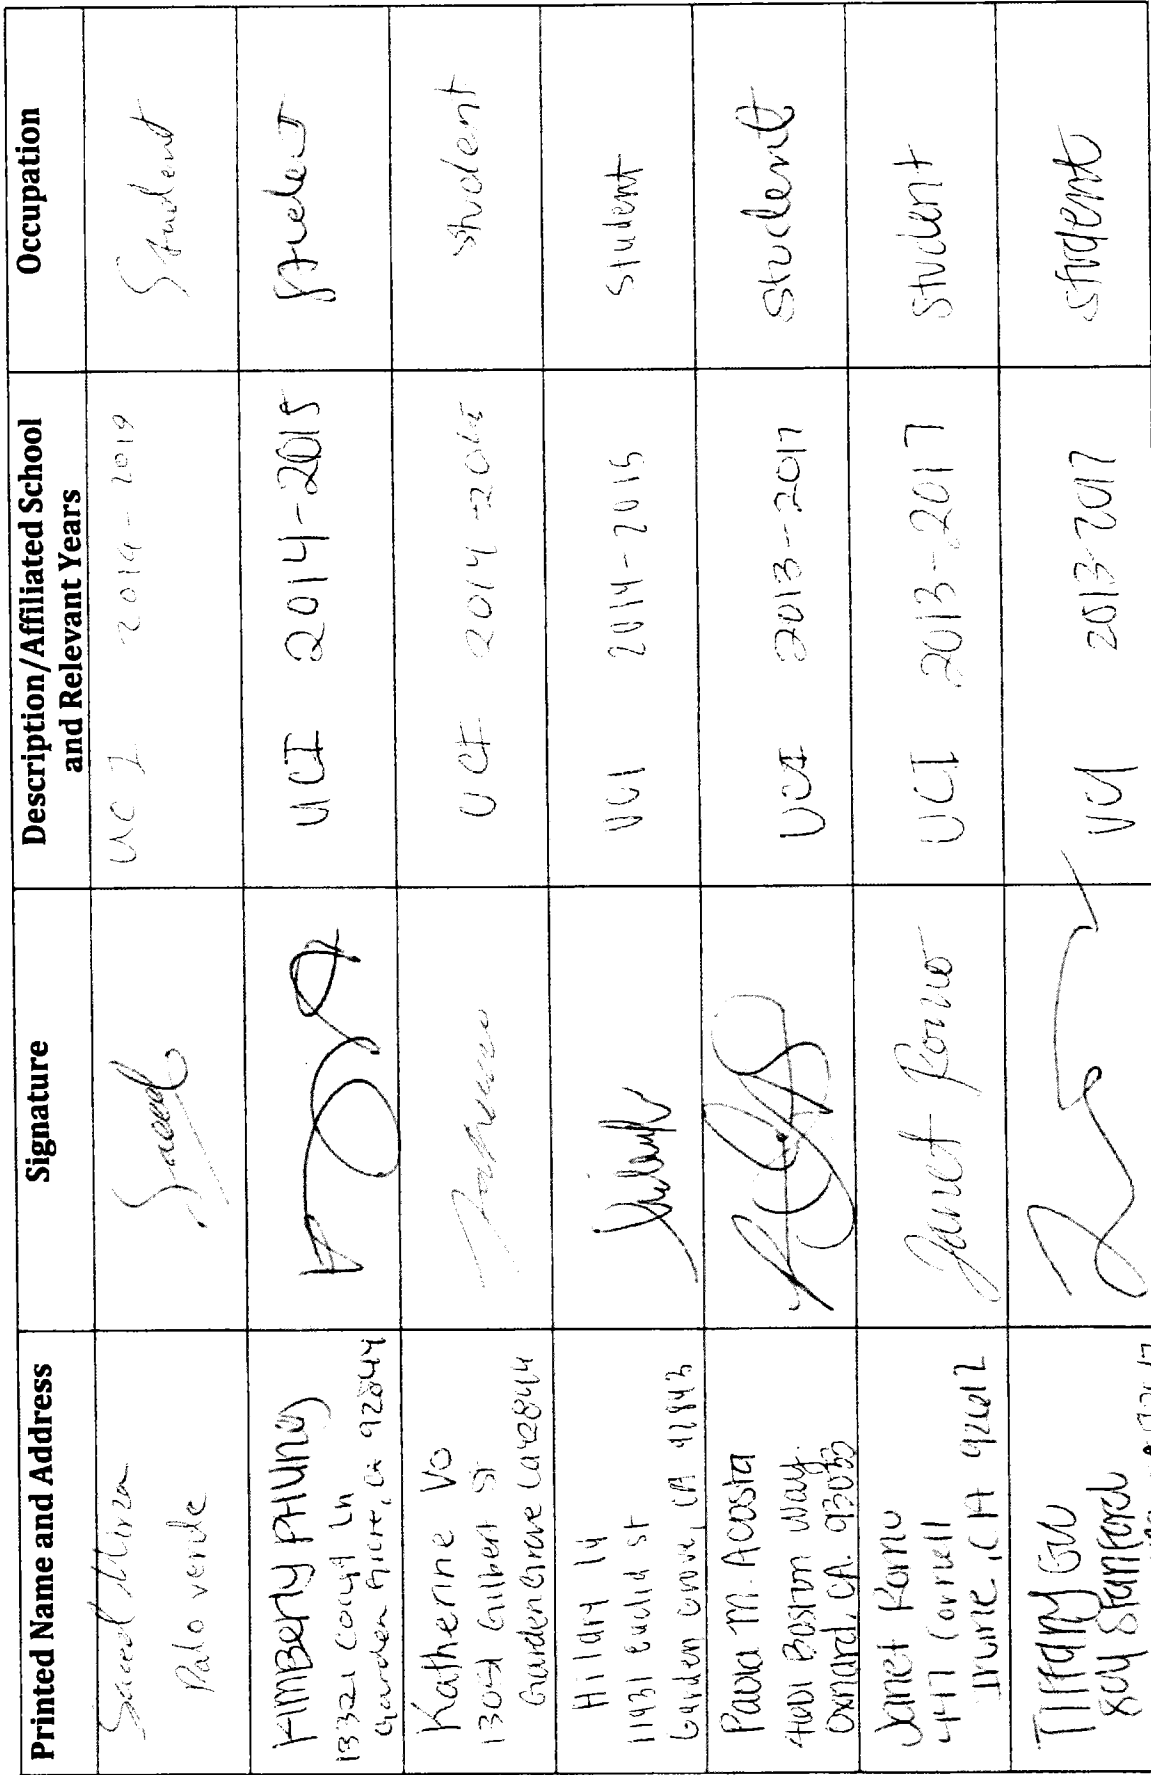 Printed Name and Address
Signature
Description/Affiliated School
and Relevant Years
Occupation
Saeed Mirza
Palo verde
Saeed
UCI 2014-2019
Student
KIMBERly PHUNG
13321 Court Ln
Garden Grove, Ca 92844
UCI 2014-2015
Student
Katherine Vo
Gilbert St
Garden Grove Ca 92844
UCI 2014-2015
student
Hilary Ly
11931 Euclid st
Garden Grove, CA
UCI 2014-2015
Student
Paola M. Acosta
Boston Way.
Oxnard, CA.
UCI 2013-2017
Student
Janet Romo
447 Cornell
Irvine, CA 92612
Janet Romo
UCI 2013-2017
student
TIFFany Guo
804 Stanford
UCI 2013-2017
student